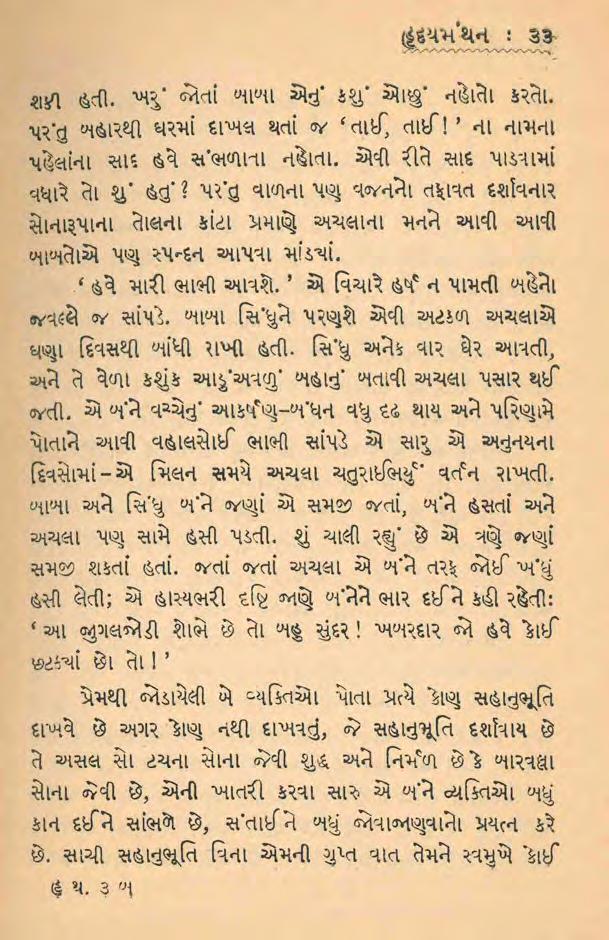 હૃદયમંથન : ૩૩
શકી હતી. ખરું જોતાં બાબા એનું કશું ઓછું નહોતો કરતો.
પરંતુ બહારથી ઘરમાં દાખલ થતાં જ ‘તાઈ, તાઈ!’ ના નામના
પહેલાંના સાદ હવે સંભળાતા નહોતા. એવી રીતે સાદ પાડવામાં
વધારે તો શું હતું? પરંતુ વાળના પણ વજનનો તફાવત દર્શાવનાર
સોનારૂપાના તોલના કાંટા પ્રમાણે અચલાના મનને આવી આવી
બાબતોએ પણ સ્પન્દન આપવા માંડ્યાં.
‘હવે મારી ભાભી આવશે.’ એ વિચારે હર્ષ ન પામતી બહેનો
જવલ્લે જ સાંપડે. બાબા સિંધુને પરણશે એવી અટકળ અચલાએ
ઘણા દિવસથી બાંધી રાખી હતી. સિંધુ અનેક વાર ઘેર આવતી,
અને તે વેળા કશુંક આડુંઅવળું બહાનું બતાવી અચલા પસાર થઈ
જતી. એ બંને વચ્ચેનું આકર્ષણ-બંધન વધુ દૃઢ થાય અને પરિણામે
પોતાને આવી વહાલસોઈ ભાભી સાંપડે એ સારુ એ અનુનયના
દિવસોમાં–એ મિલન સમયે અચલા ચતુરાઈભર્યું વર્તન રાખતી.
બાબા અને સિંધુ બંને જણાં એ સમજી જતાં, બંને હસતાં અને
અચલા પણ સામે હસી પડતી. શું ચાલી રહ્યું છે એ ત્રણે જણાં
સમજી શકતાં હતાં. જતાં જતાં અચલા એ બંને તરફ જોઈ ખંધું
હસી લેતી; એ હાસ્યભરી દૃષ્ટિ જાણે બંનેને ભાર દઈને કહી રહેતી:
‘આ જુગલજોડી શોભે છે તો બહુ સુંદર! ખબરદાર જો હવે કોઈ
છટક્યાં છો તો!’
પ્રેમથી જોડાયેલી બે વ્યક્તિઓ પોતા પ્રત્યે કોણ સહાનુભૂતિ
દાખવે છે અગર કોણ નથી દાખવતું, જે સહાનુભૂતિ દર્શાવાય છે
તે અસલ સો ટચના સોના જેવી શુદ્ધ અને નિર્મળ છે કે બારવલા
સોના જેવી છે, એની ખાતરી કરવા સારુ એ બંને વ્યક્તિઓ બધું
કાન દઈને સાંભળે છે, સંતાઈને બધું જોવાજાણવાનો પ્રયત્ન કરે
છે. સાચી સહાનુભૂતિ વિના એમની ગુપ્ત વાત તેમને સ્વમુખે કોઈ
હૃ થ. ૩ બ